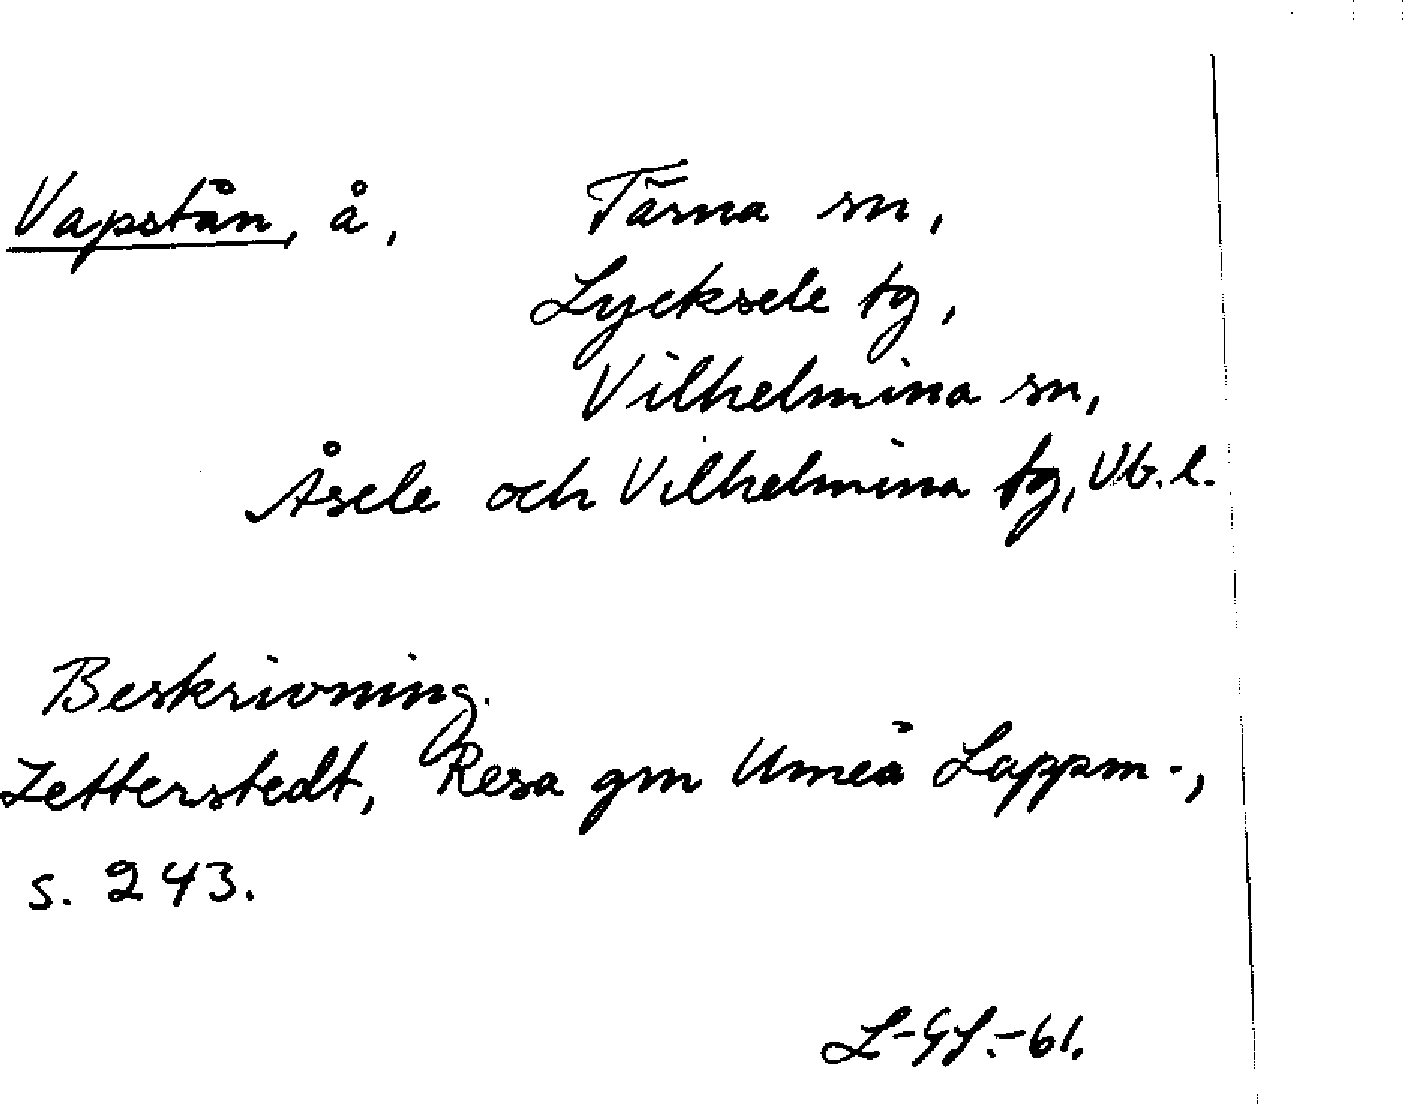 Vapstån, å, Tärna sn,
Lycksele tg,
Vilhelmina sn,
Åsele och Vilhelmina tg, Vb. l.
Beskrivning.
Zetterstedt, Resa gm Umeå Lappm.,
s. 243.
L-GS.-61.